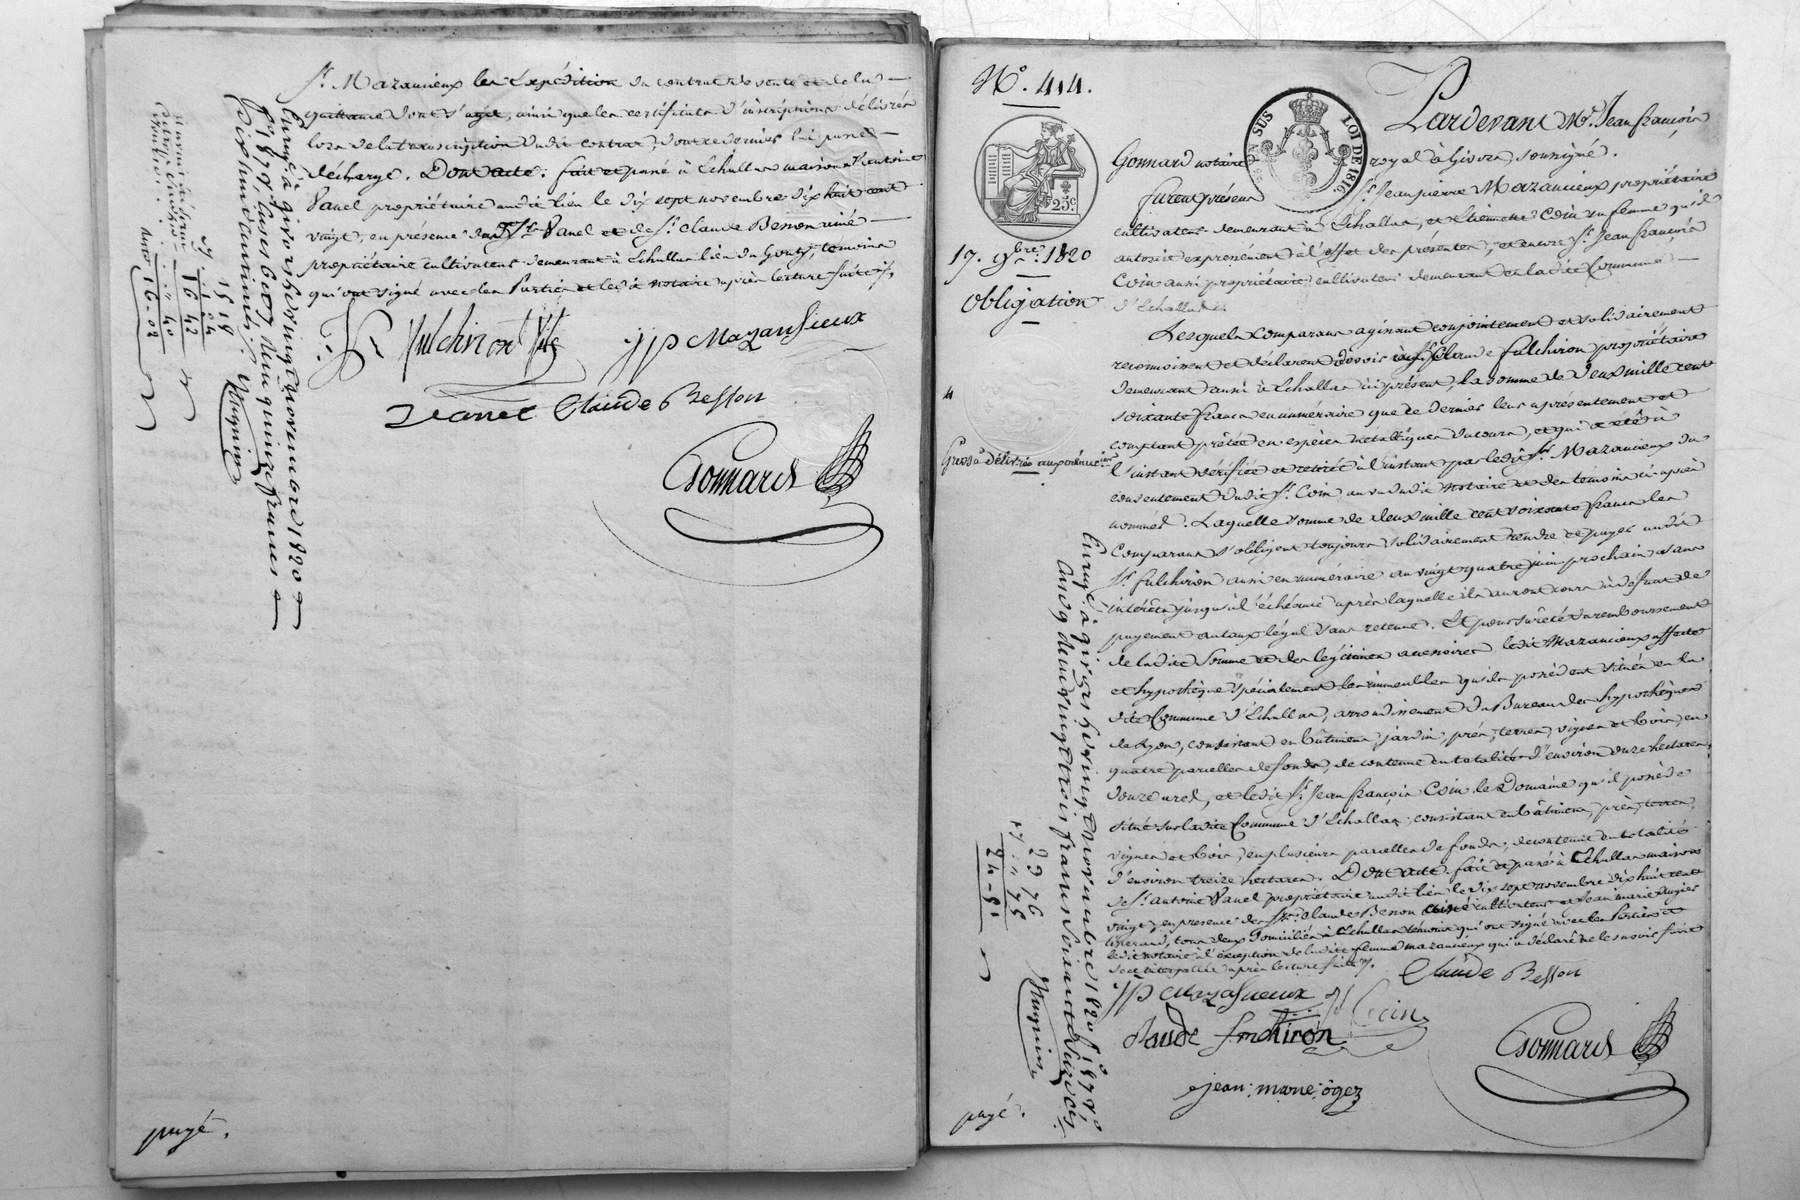 Sr. Mazancieux les Expédition du contrat de vente et de la
quittance dont s'agit, ainsi que les certificats d'inscriptions délivrés
lors de la transcription dudit contrat, dont ce dernier lui passe
décharge. Dont acte. fait et passé à Echallas maison d'Antoine
Vanel propriétaire audit lieu le dix sept novembre dix huit cent
vingt, en présence dud. Sr. Vanel et de Sr. Claude Besson ainé
propriétaire cultivateur demeurant à Echallas lieu du Gouty, témoins
qui ont signé avec les Parties et led. notaire après lecture faite.
Fulchiron fils
JJP Mazansieux
Vanel Claude Besson
Gonnard
Enregé. à givors le vingt novembre 1820
fo. 187 vo. cases 6 et 7 reçu quinze francs
dix huit centimes.
payé.
No. 414.
17. 9bre. 1820
Obligation
Grosse délivrée au créancier
SUS
LOI DE 1816
25c
Pardevant Me. Jean françois
Gonnard notaire royal à Givors, soussigné.
furent présens Sr. Jean pierre Mazancieux propriétaire
cultivateur demeurant à Echallas, et Etiennette Coin sa femme qu'il
autorise expressément à l'effet des présentes, et encore Sr. Jean françois
Coin aussi propriétaire cultivateur demeurant en ladite Commune
d'Echallas.
Lesquels comparans agissant conjointement et solidairement
reconnoissent et déclarent devoir à Sr. Claude fulchiron propriétaire
demeurant aussi à Echallas ici présent, la somme de deux mille cent
soixante francs en numéraire que ce dernier leur a présentement et
comptant prêtée en espèces métalliques du cours, et qui a été à
l'instant vérifiée et retirée à l'instant par ledit Sr. Mazancieux du
consentement dudit Sr. Coin au vu dudit Notaire et des témoins ci après
nommés. Laquelle somme de deux mille cent soixante francs les
Comparans s'obligent toujours solidairement rendre et payer audit
Sr. fulchiron aussi en numéraire au vingt quatre juin prochain sans
intérêts jusqu'à l'échéance après laquelle ils auront cours à défaut de
payement au taux légal sans retenue. Et pour sûreté du remboursement
de ladite Somme et des légitimes accessoires ledit Mazancieux affecte
et hypothèque spécialement les immeubles qu'ils possèdent situés en la
dite Commune d'Echallas, arrondissement du Bureau des hypothèques
de Lyon, consistant en bâtimens, jardin, prés, terres, vignes et bois, en
quatre parcelles de fonds, de contenue en totalité d'environ onze hectares
douze ares, et ledit Sr. Jean françois Coin le Domaine qu'il possède
situé sur ladite Commune d'Echallas consistant en bâtimens, prés, terres,
vignes et bois, en plusieurs parcelles de fonds, de contenue en totalité
d'environ treize hectares. Dont acte. fait et passé à Echallas maison
de Sr. Antoine Vanel propriétaire audit lieu le dix sept novembre dix huit cent
vingt, en présence des Srs. Claude Besson ainé cultivateur et Jean marie Augier
tous deux domiciliés à Echallas témoins qui ont signé avec les Parties et
ledit notaire à l'exception de ladite femme mazancieux qui a déclaré ne le savoir faire
de ce interpellée après lecture faite.
Claude Besson
JJP Mazasieux
Coin
claude fulchiron
Gonnard
jean marie ôgez
Enregé. à givors le vingt novembre 1820 fo. 187 vo.
Case 9 reçu vingt trois francs soixante seize ces.
payé.